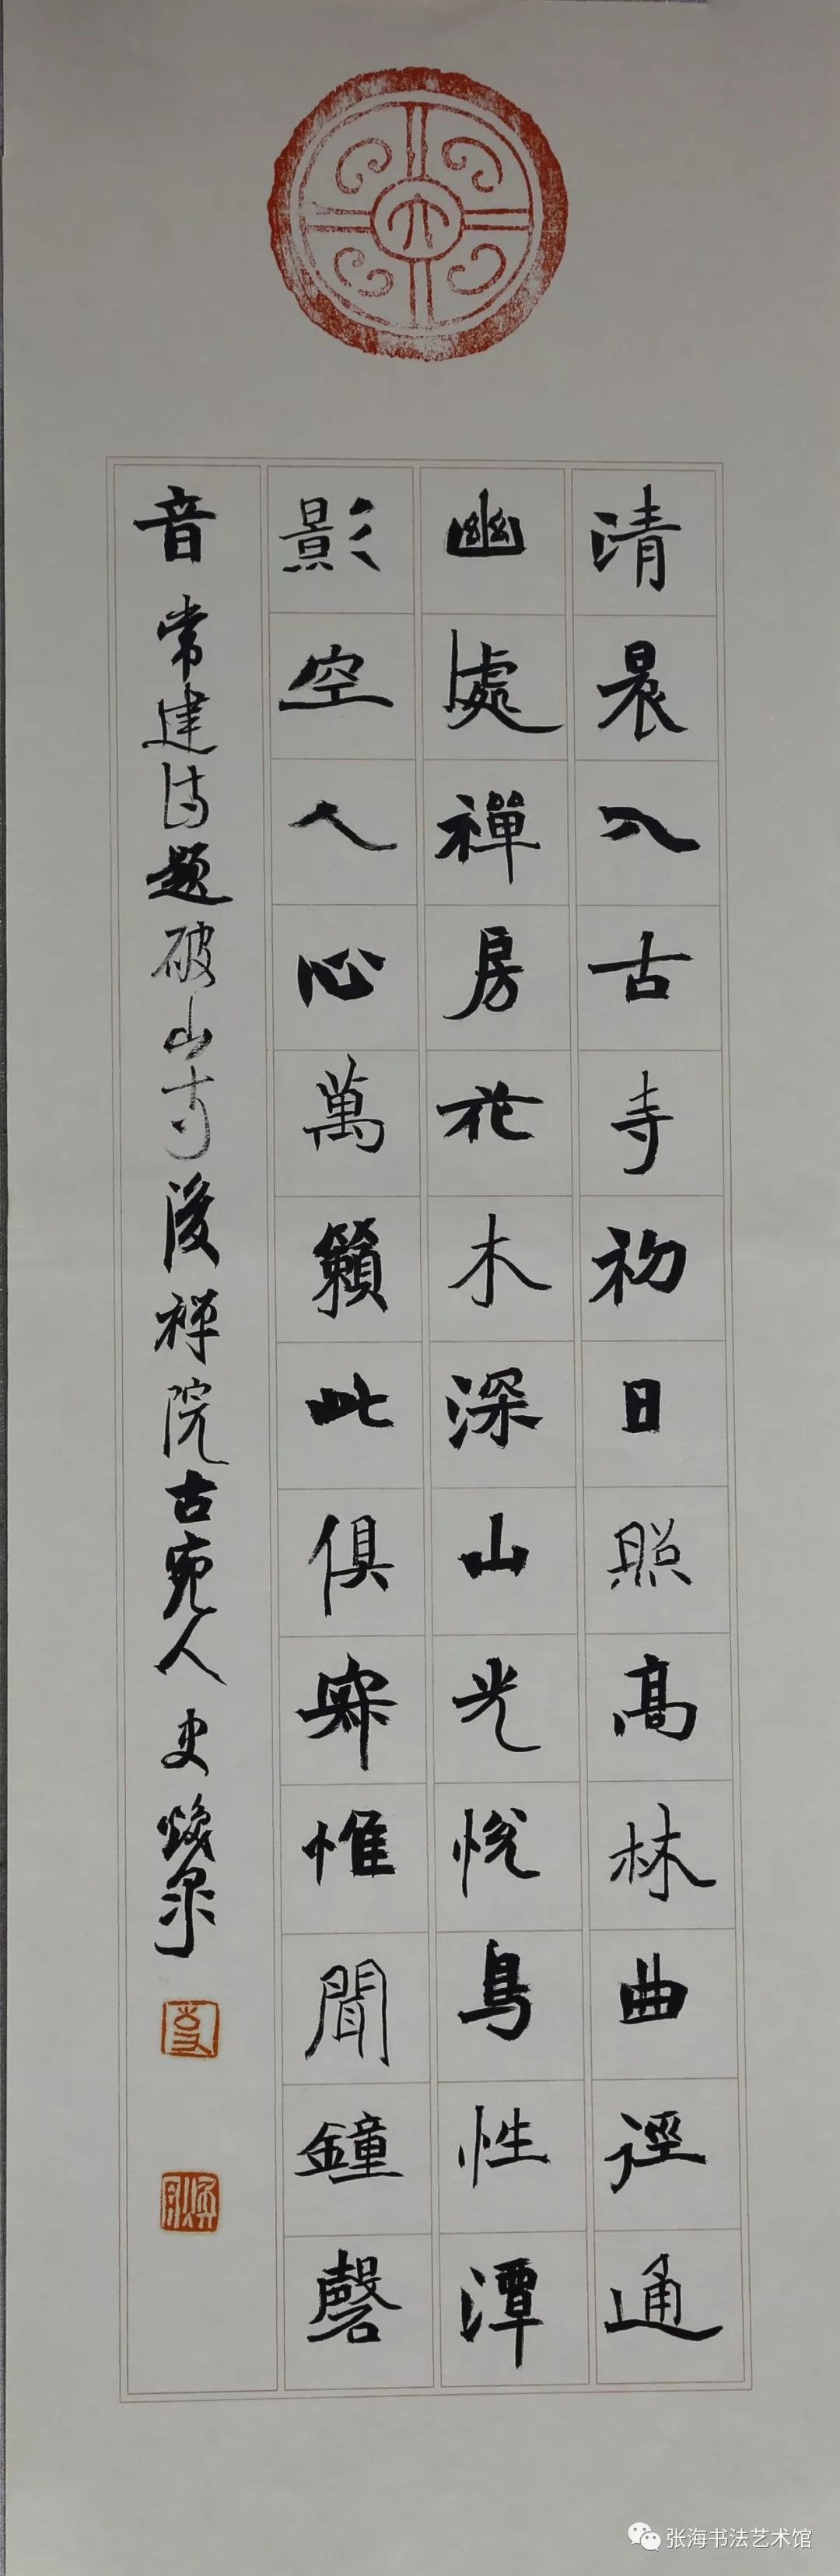 清晨入古寺初日照高林曲径通
幽處禪房花木深山光悦鳥性潭
影空人心萬籟此俱寂惟聞鐘磬
音 常建诗题破山寺後禅院古宛人史焕泉
张海书法艺术馆